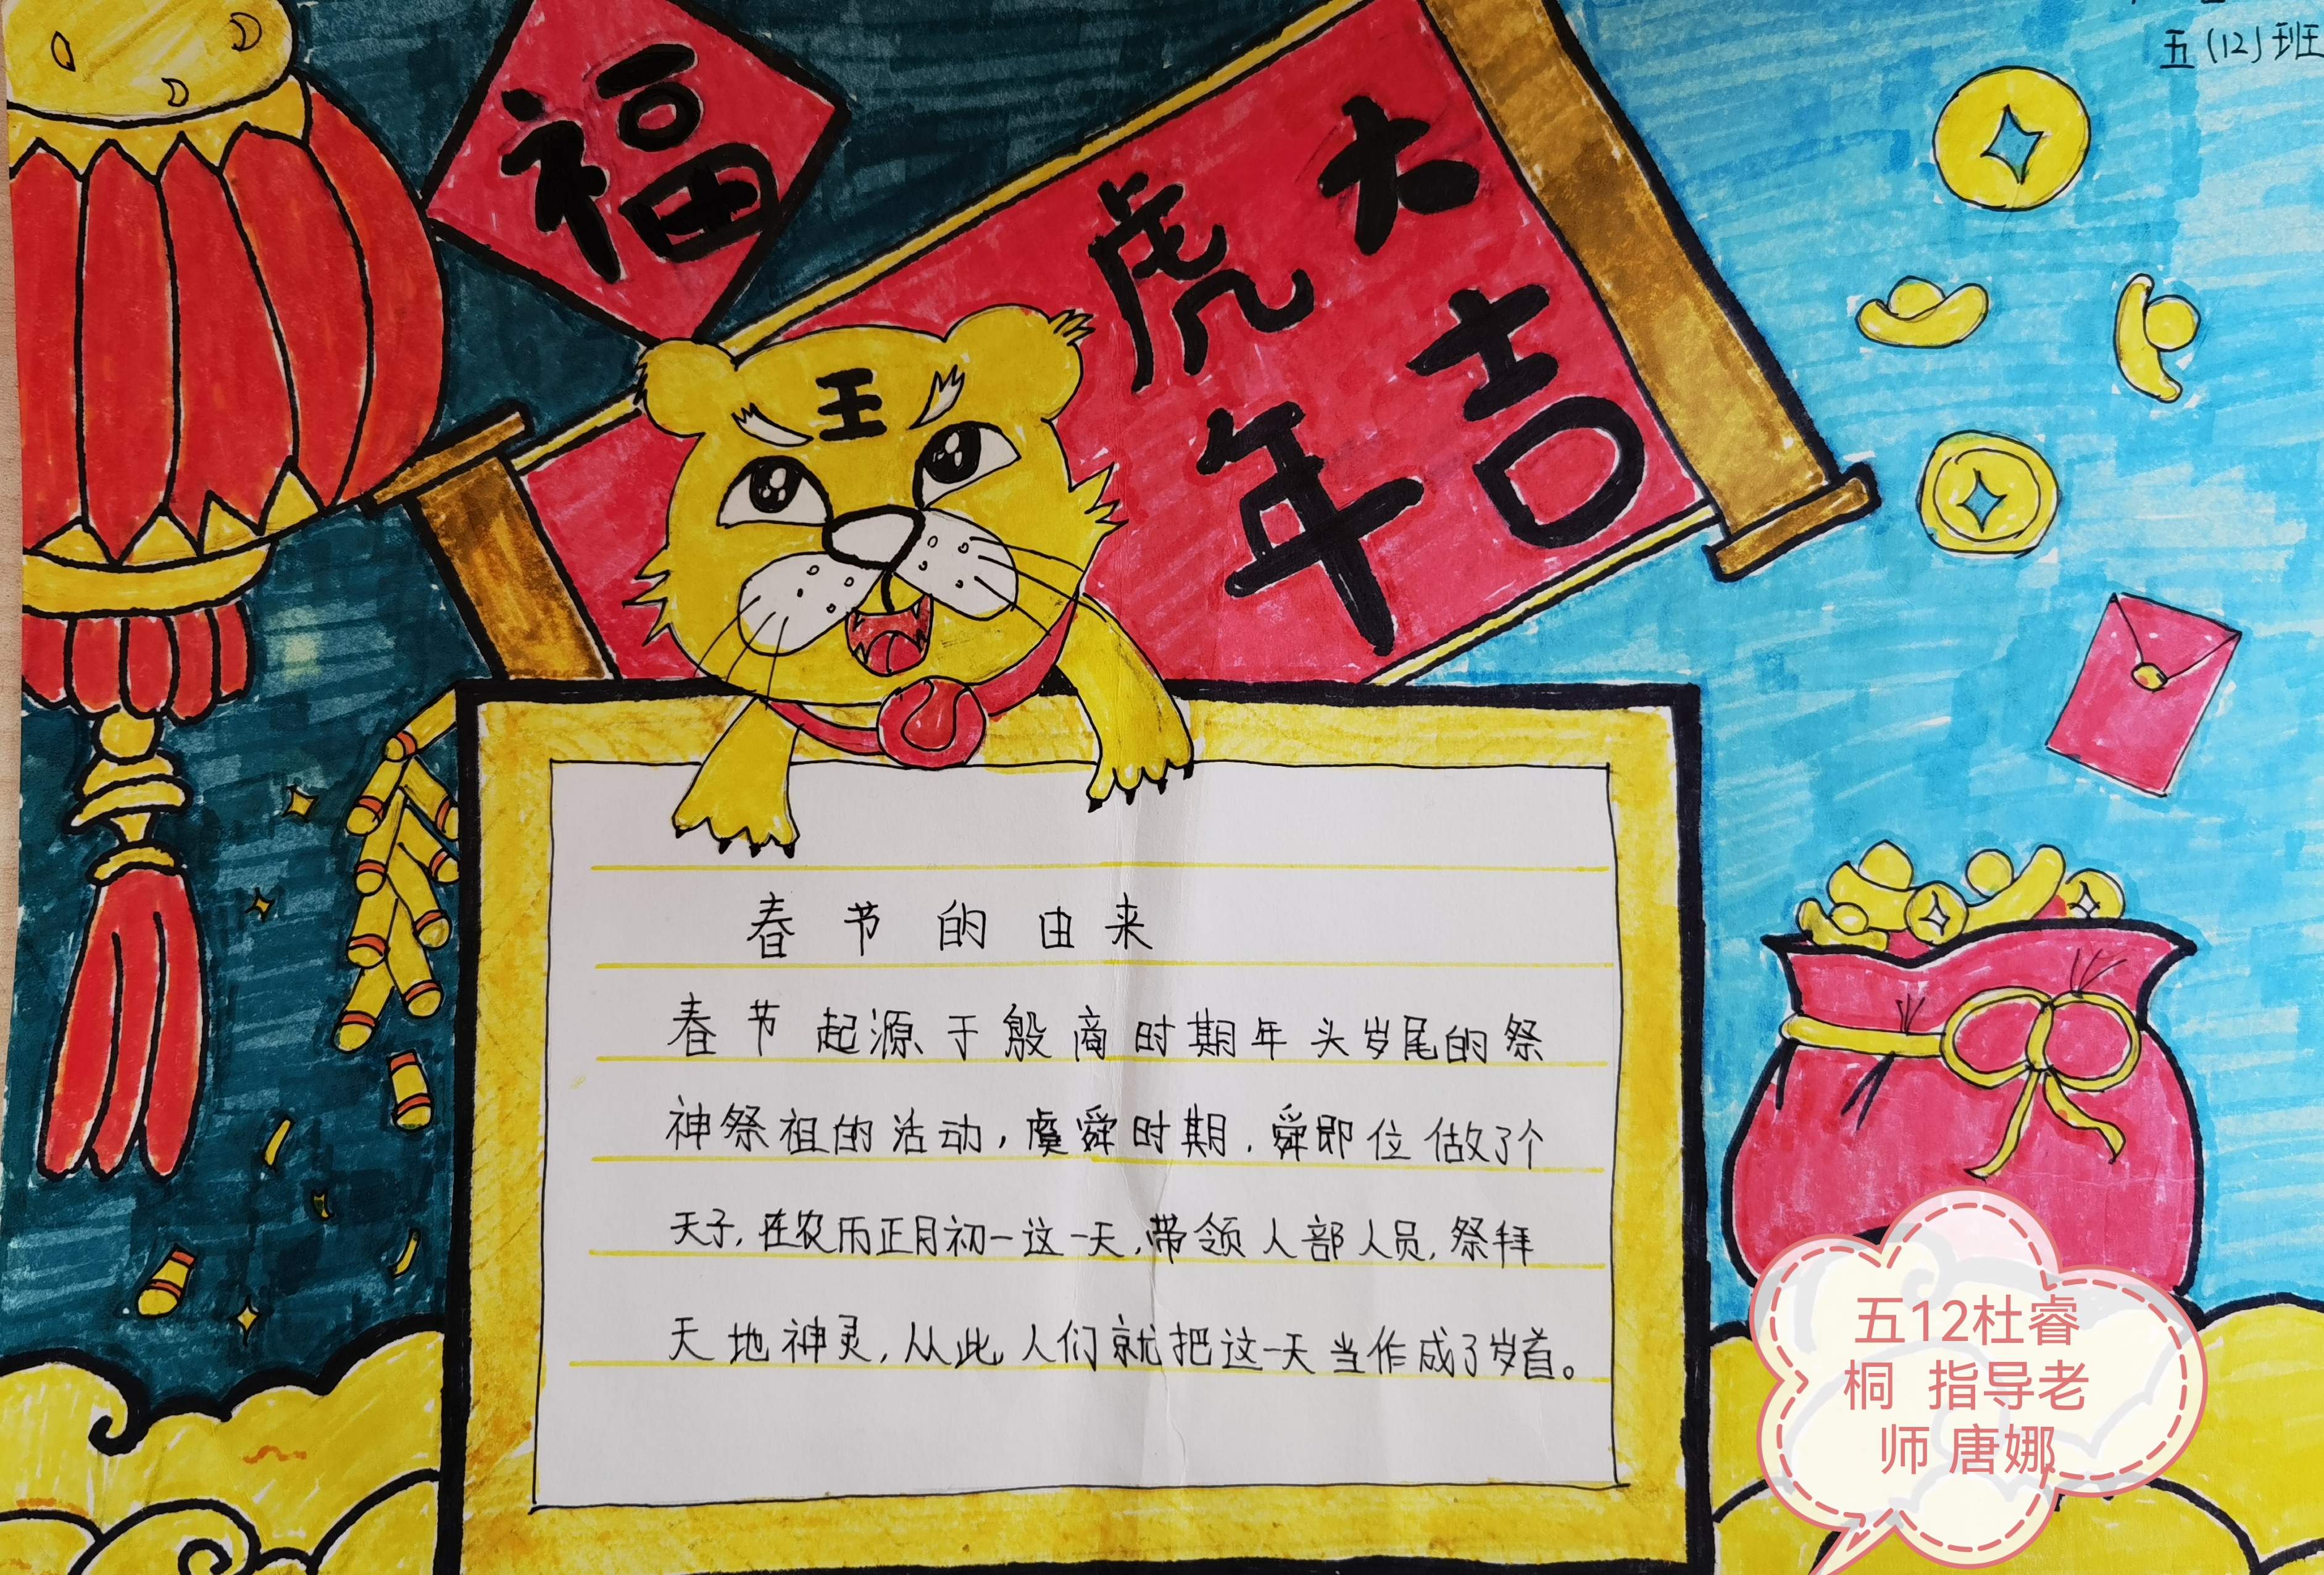 五(12)班
福
虎年
大吉
王
春节的由来
春节起源于殷商时期年头岁尾的祭
神祭祖的活动,虞舜时期,舜即位做了个
天子,在农历正月初一这一天,带领人部人员,祭拜
天地神灵,从此人们就把这一天当作成了岁首。
五12杜睿
桐 指导老
师 唐娜